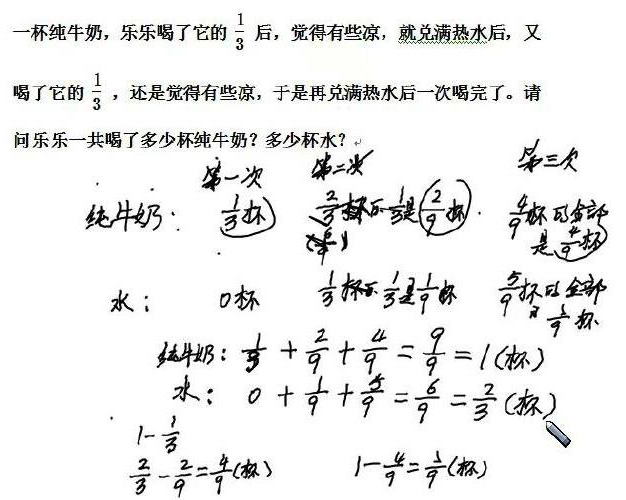 一杯纯牛奶，乐乐喝了它的 1/3 后，觉得有些凉，就兑满热水后，又
喝了它的 1/3 ，还是觉得有些凉，于是再兑满热水后一次喝完了。请
问乐乐一共喝了多少杯纯牛奶？多少杯水？
第一次 第二次 第三次
纯牛奶： 1/3杯 2/3杯的1/3是2/9杯. 4/9杯的全部
(6/9) 是4/9杯
水： 0杯 1/3杯的1/3是1/9杯 5/9杯的全部
是5/9杯
纯牛奶：1/3+2/9+4/9=9/9=1(杯)
水：0+1/9+5/9=6/9=2/3(杯)
1-1/3
2/3-2/9=4/9(杯) 1-4/9=5/9(杯)